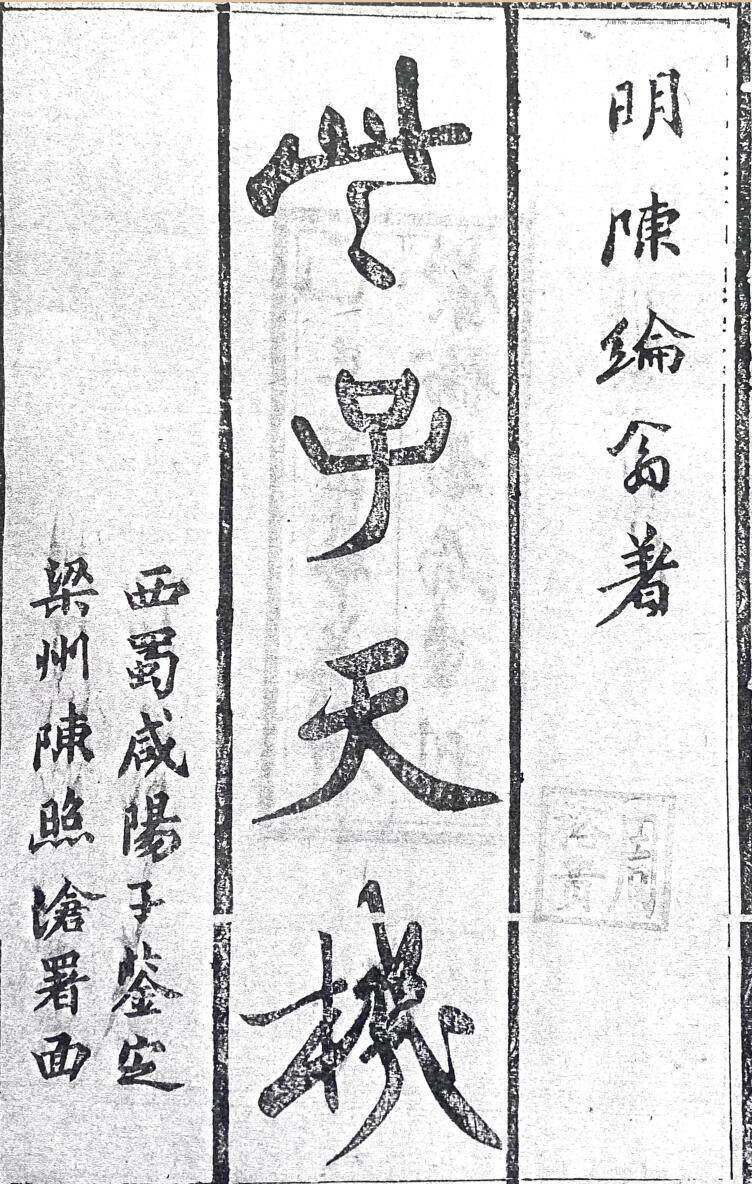 明陳綸著
天機
西蜀咸陽子鉴定
梁州陳照滄署面